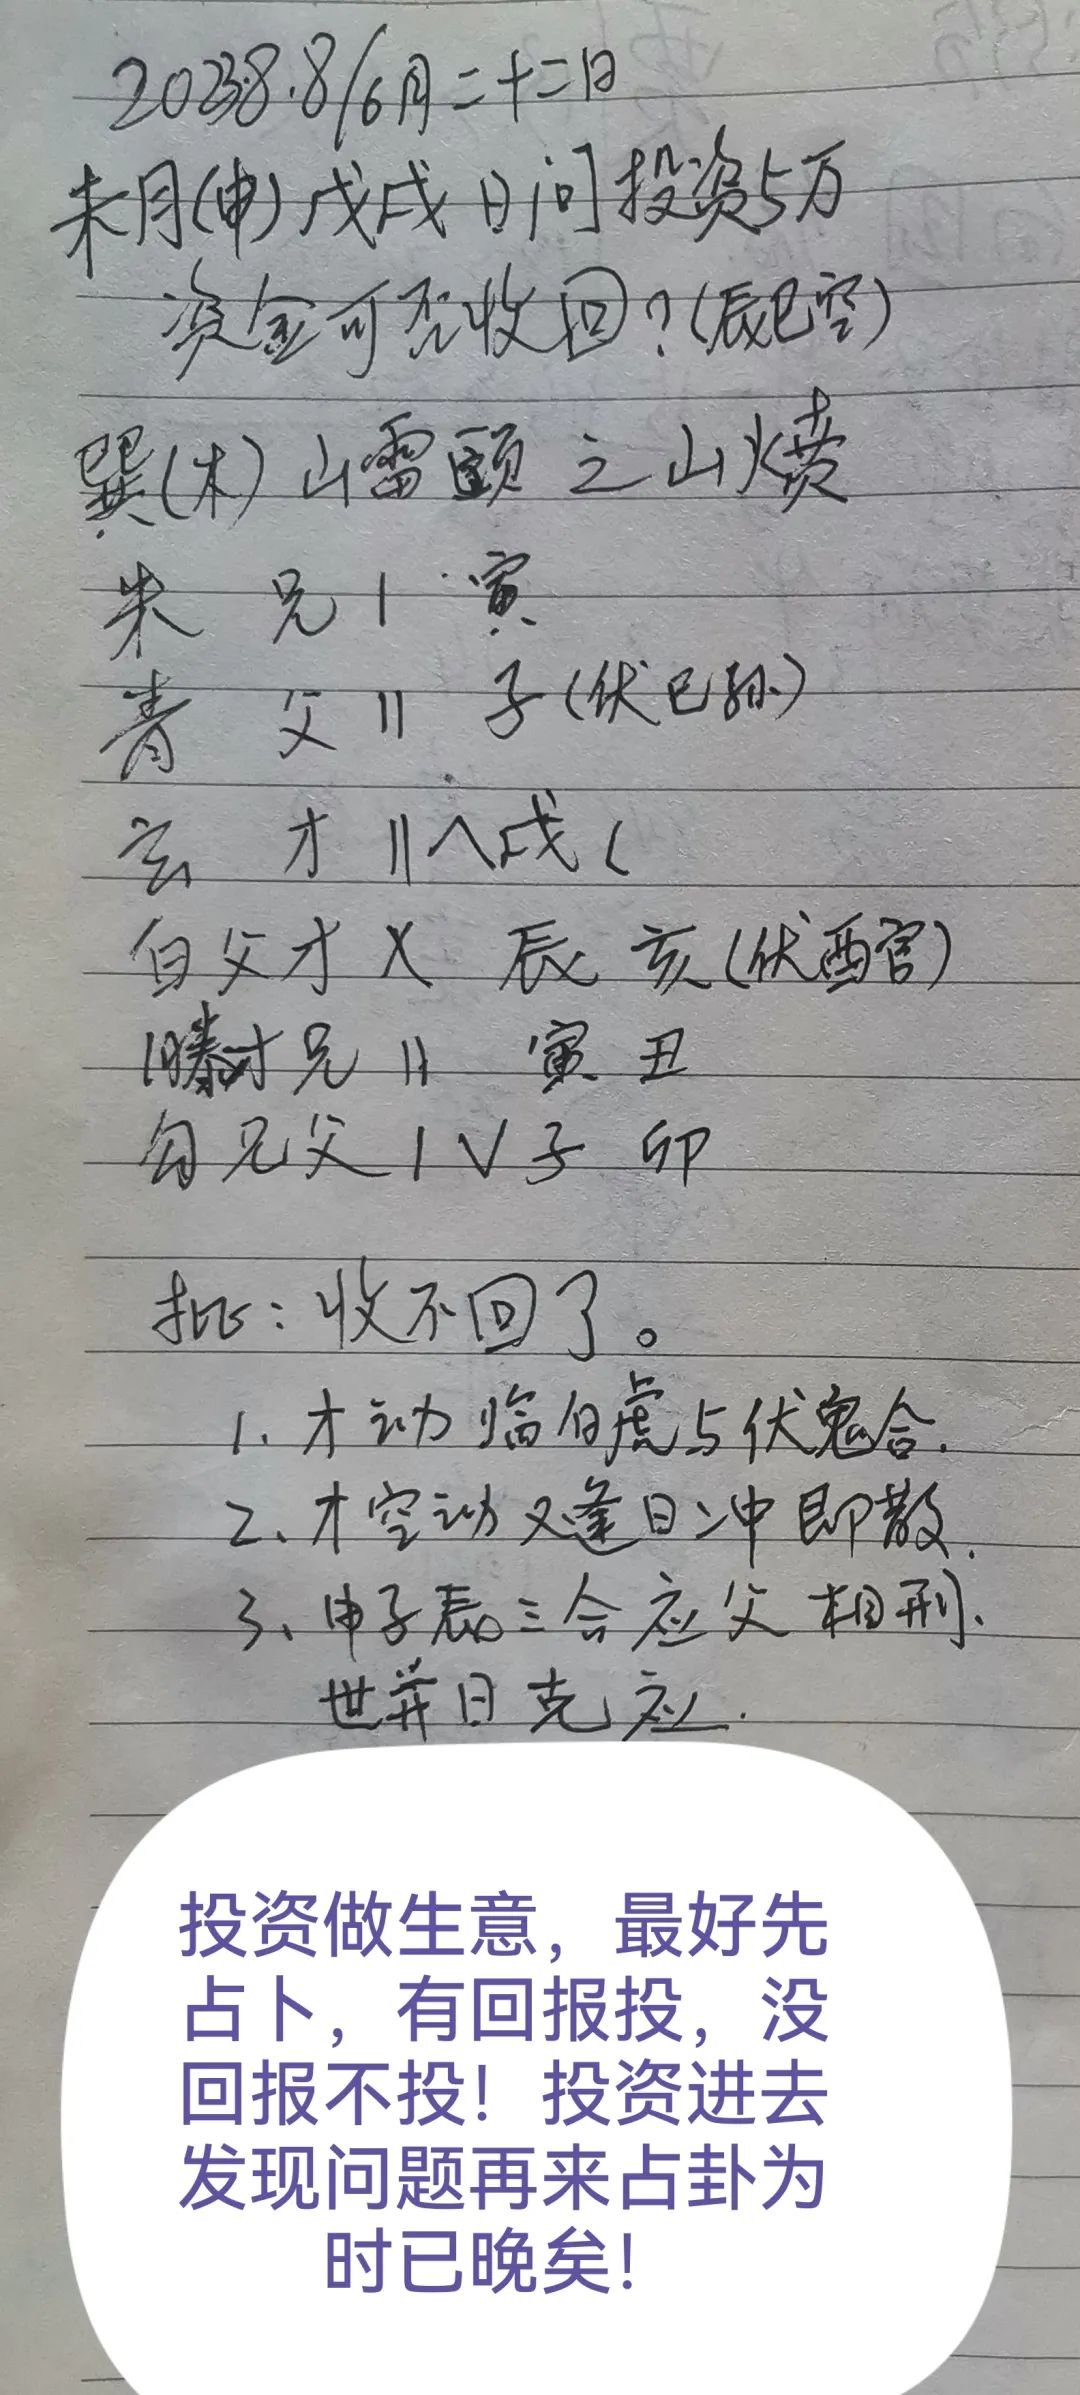 2023.8.8/6月二十二日
未月(申)戊戌日问投资5万
资金可否收回?(辰巳空)
巽(木)山雷頤之山火贲
朱 兄 1 寅
青 父 11 子(伏巳孙)
玄 才 11 八 戌(
白 父 才 X 辰 亥(伏酉官)
腾 才 兄 11 寅 丑
勾 兄 父 1 V 子 卯
批:收不回了。
1、才动临白虎与伏鬼合.
2、才空动又逢日冲即散.
3、申子辰三合应父 相刑.
世并日克应.
投资做生意，最好先
占卜，有回报投，没
回报不投！投资进去
发现问题再来占卦为
时已晚矣！